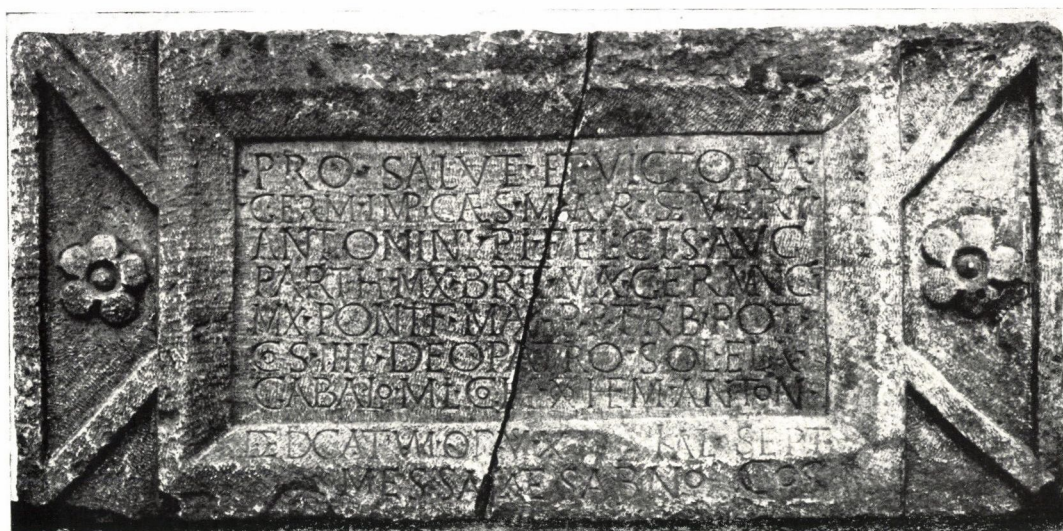 PRO · SALVTE · ET VICTORIA
GERM · IMP · CAES · M · AVR · SEVERI
ANTONINI · PII · FELICIS · AVG
PARTH · MAX · BRIT · MAX · GERMANIC
MAX · PONTIF · MAX · TRIB · POT
COS · IIII · DEO PATRIO · SOLI · ELA
GABALO · MIL · COH · ∞ · HEM · ANTON ·
DEDICATVM · KAL · SEPT
SABINO · COS